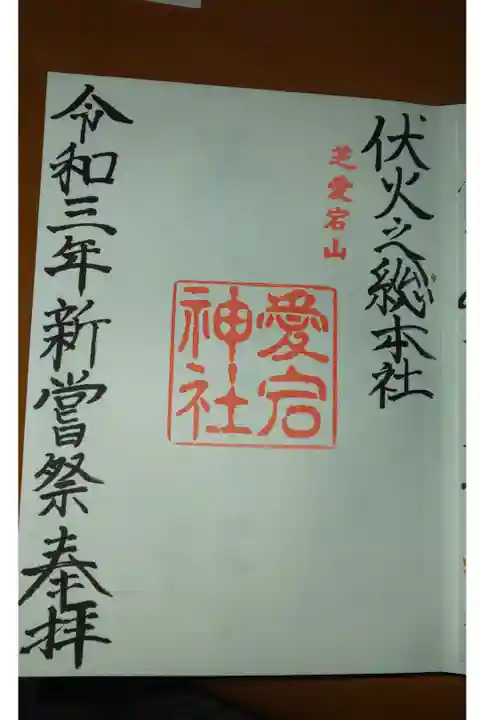 伏火之総本社
芝愛宕山
愛宕
神社
令和三年新嘗祭奉拝